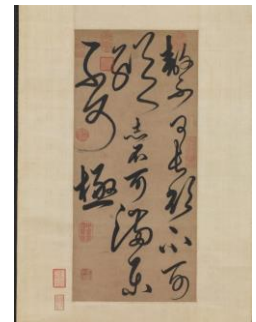 敖不可長欲不可
從志不可滿樂
不可極